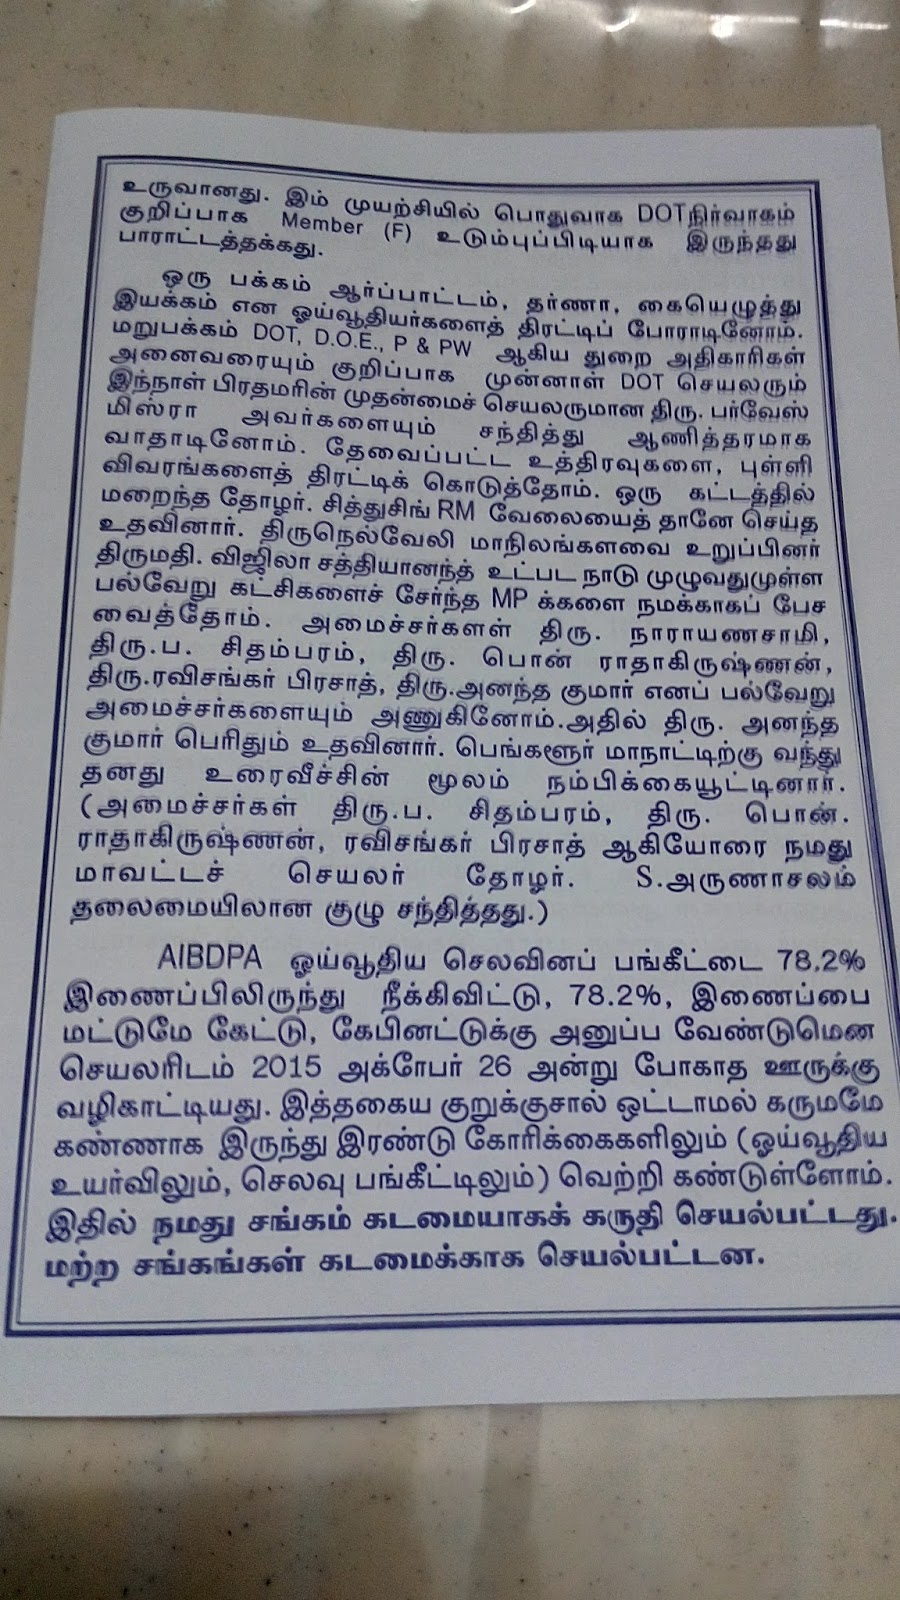 உருவானது. இம் முயற்சியில் பொதுவாக DOTநிர்வாகம்
குறிப்பாக Member (F) உடும்புப்பிடியாக இருந்தது
பாராட்டத்தக்கது.
ஒரு பக்கம் ஆர்ப்பாட்டம், தர்ணா, கையெழுத்து
இயக்கம் என ஓய்வூதியர்களைத் திரட்டிப் போராடினோம்.
மறுபக்கம் DOT, D.O.E., P & PW ஆகிய துறை அதிகாரிகள்
அனைவரையும் குறிப்பாக முன்னாள் DOT செயலரும்
இந்நாள் பிரதமரின் முதன்மைச் செயலருமான திரு. பர்வேஸ்
மிஸ்ரா அவர்களையும் சந்தித்து ஆணித்தரமாக
வாதாடினோம். தேவைப்பட்ட உத்திரவுகளை, புள்ளி
விவரங்களைத் திரட்டிக் கொடுத்தோம். ஒரு கட்டத்தில்
மறைந்த தோழர். சித்துசிங் RM வேலையைத் தானே செய்த
உதவினார். திருநெல்வேலி மாநிலங்களவை உறுப்பினர்
திருமதி. விஜிலா சத்தியானந்த் உட்பட நாடு முழுவதுமுள்ள
பல்வேறு கட்சிகளைச் சேர்ந்த MP க்களை நமக்காகப் பேச
வைத்தோம். அமைச்சர்களள் திரு. நாராயணசாமி,
திரு.ப. சிதம்பரம், திரு. பொன் ராதாகிருஷ்ணன்,
திரு.ரவிசங்கர் பிரசாத், திரு.அனந்த குமார் எனப் பல்வேறு
அமைச்சர்களையும் அணுகினோம்.அதில் திரு. அனந்த
குமார் பெரிதும் உதவினார். பெங்களூர் மாநாட்டிற்கு வந்து
தனது உரைவீச்சின் மூலம் நம்பிக்கையூட்டினார்.
(அமைச்சர்கள் திரு.ப. சிதம்பரம், திரு. பொன்.
ராதாகிருஷ்ணன், ரவிசங்கர் பிரசாத் ஆகியோரை நமது
மாவட்டச் செயலர் தோழர். S.அருணாசலம்
தலைமையிலான குழு சந்தித்தது.)
AIBDPA ஓய்வூதிய செலவினப் பங்கீட்டை 78.2%
இணைப்பிலிருந்து நீக்கிவிட்டு, 78.2%, இணைப்பை
மட்டுமே கேட்டு, கேபினட்டுக்கு அனுப்ப வேண்டுமென
செயலரிடம் 2015 அக்ரோபர் 26 அன்று போகாத ஊருக்கு
வழிகாட்டியது. இத்தகைய குறுக்குசால் ஒட்டாமல் கருமமே
கண்ணாக இருந்து இரண்டு கோரிக்கைகளிலும் (ஓய்வூதிய
உயர்விலும், செலவு பங்கீட்டிலும்) வெற்றி கண்டுள்ளோம்.
இதில் நமது சங்கம் கடமையாகக் கருதி செயல்பட்டது.
மற்ற சங்கங்கள் கடமைக்காக செயல்பட்டன.